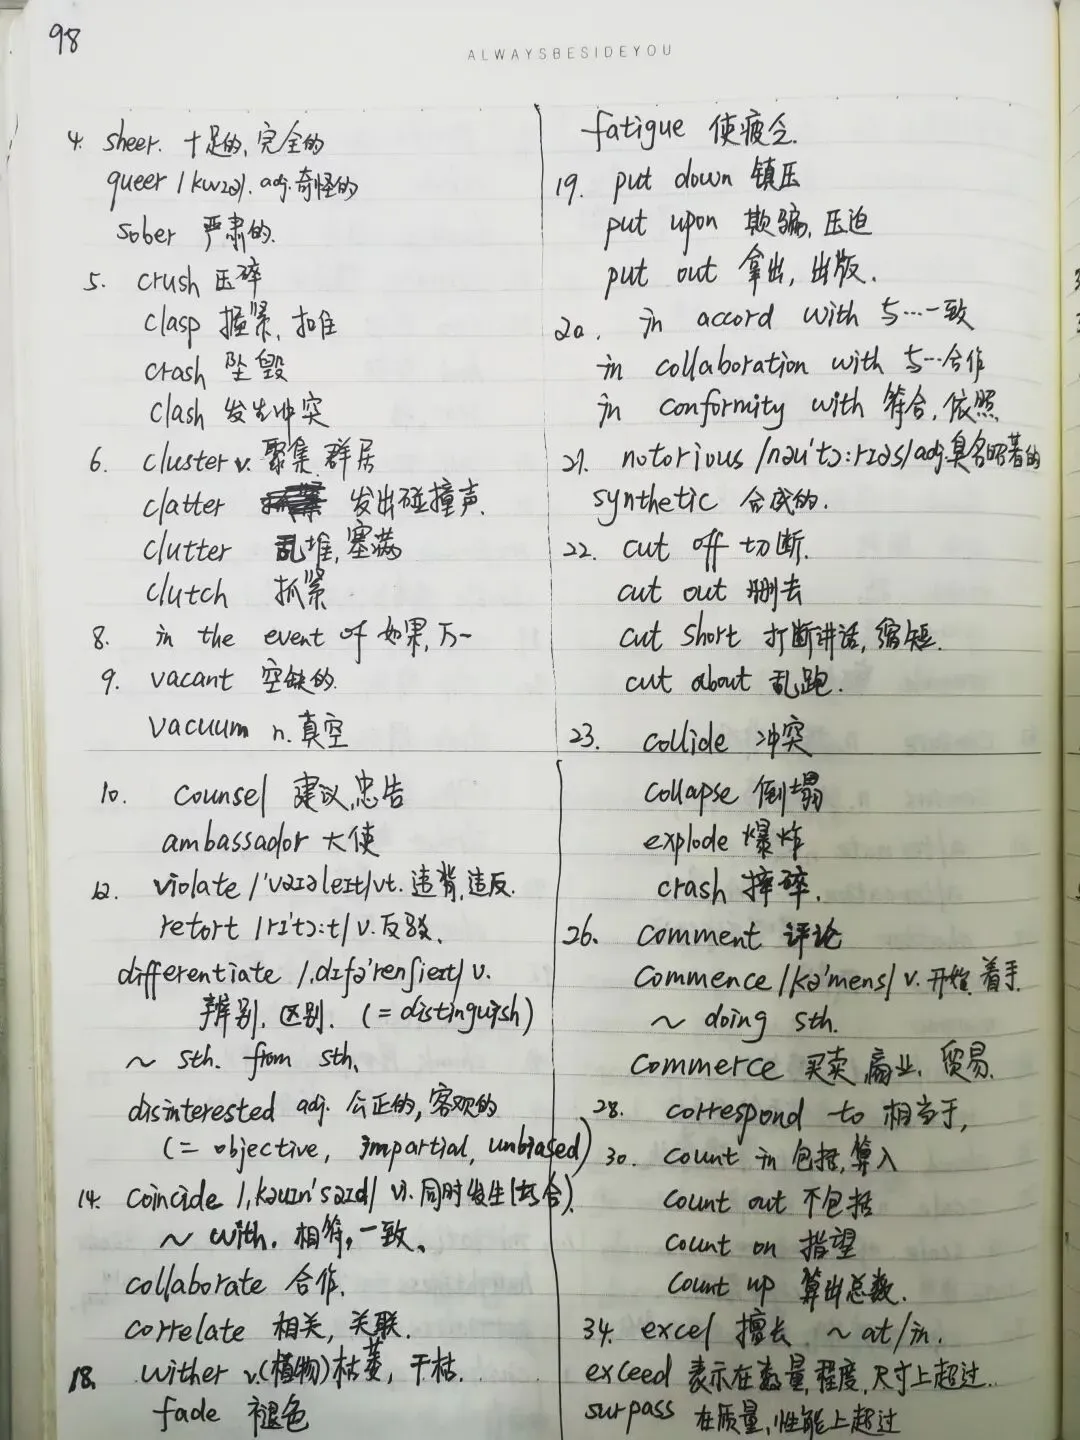 98
ALWAYSBESIDEYOU
4. sheer. 十足的、完全的
queer /kwɪə/. adj.奇怪的
sober 严肃的.
5. crush 压碎
clasp 握紧、扣住
crash 坠毁
clash 发生冲突
6. cluster v. 聚集 群居
clatter 发出碰撞声.
clutter 乱堆,塞满
clutch 抓紧
8. in the event of 如果,万一
9. vacant 空缺的.
vacuum n.真空
10. counsel 建议,忠告
ambassador 大使
12. violate /'vaɪəleɪt/vt. 违背,违反.
retort /rɪ'tɔ:t/ v.反驳.
differentiate /ˌdɪfə'renʃieɪt/ v.
辨别、区别. (= distinguish)
~ sth. from sth.
disinterested adj. 公正的,客观的
(= objective, impartial, unbiased)
14. coincide /ˌkəʊɪn'saɪd/ vi.同时发生(巧合).
~ with. 相符,一致、
collaborate 合作.
correlate 相关,关联.
18. wither v.(植物)枯萎,干枯.
fade 褪色
fatigue 使疲乏.
19. put down 镇压
put upon 欺骗、压迫
put out 拿出,出版.
20. in accord with 与…一致
in collaboration with 与…合作
in conformity with 符合、依照
21. notorious /nəʊ'tɔ:rɪəs/adj.臭名昭著的
synthetic 合成的.
22. cut off 切断.
cut out 删去
cut short 打断讲话,缩短.
cut about 乱跑.
23. collide 冲突
collapse 倒塌
explode 爆炸
crash 摔碎.
26. comment 评论
commence /kə'mens/ v.开始,着手.
~ doing sth.
commerce 买卖,商业、贸易.
28. correspond to 相当于,
30. count in 包括,算入
count out 不包括
count on 指望
count up 算出总数.
34. excel 擅长 ~ at/in.
exceed 表示在数量,程度,尺寸上超过.
surpass 在质量,性能上超过